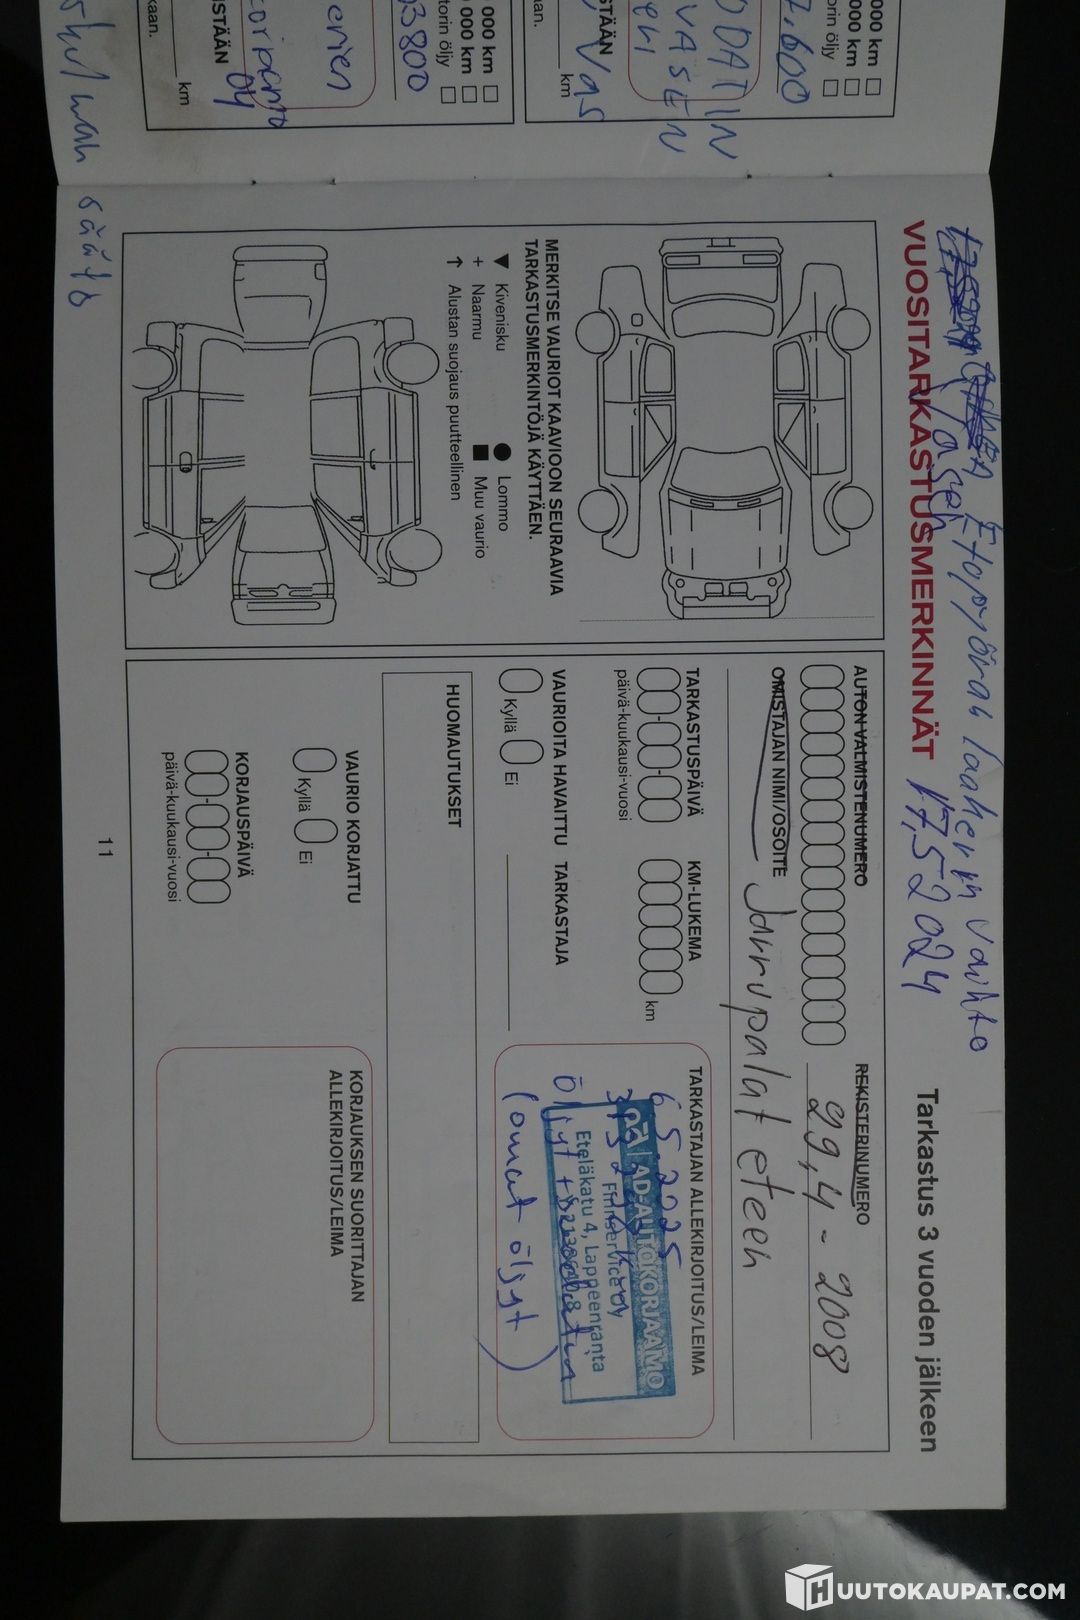 000 km
000 km
torin öljy
7.600
ODATIN
VASEN
STÄÄN
km
000 km
000 km
torin öljy
93800
ISTÄÄN
04
km
kaan.
säätö
Etupyörän laakerin vaihto
VUOSITARKASTUSMERKINNÄT 17,5 2024
Tarkastus 3 vuoden jälkeen
MERKITSE VAURIOT KAAVIOON SEURAAVIA
TARKASTUSMERKINTÖJÄ KÄYTTÄEN.
▼ Kivenisku
● Lommo
+ Naarmu
■ Muu vaurio
↑ Alustan suojaus puutteellinen
AUTON VALMISTENUMERO
REKISTERINUMERO
29,4-2008
OMISTAJAN NIMI/OSOITE
Jarrupalat eteen
TARKASTUSPÄIVÄ
päivä-kuukausi-vuosi
KM-LUKEMA
km
VAURIOITA HAVAITTU
Kyllä
Ei
TARKASTAJA
TARKASTAJAN ALLEKIRJOITUS/LEIMA
6.5.2025
ad AD-AUTOKORJAAMO
Finnservice Oy
Eteläkatu 4, Lappeenranta
Öljyt +
(omat öljyt)
HUOMAUTUKSET
VAURIO KORJATTU
Kyllä
Ei
KORJAUSPÄIVÄ
päivä-kuukausi-vuosi
KORJAUKSEN SUORITTAJAN
ALLEKIRJOITUS/LEIMA
11
HUUTOKAUPAT.COM